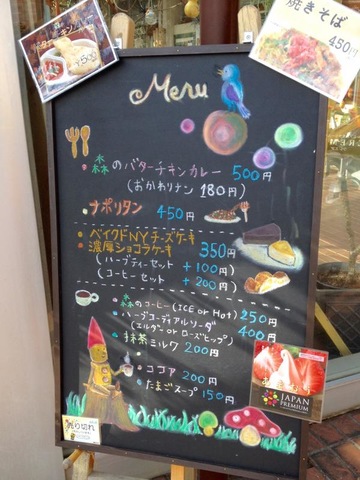 ¥500
焼きそば
450円
Menu
・森のバターチキンカレー 500円
(おかわりナン 180円)
ナポリタン 450円
・ベイクドNYチーズケーキ
・濃厚ショコラケーキ 350円
(ハーブティーセット +100円)
(コーヒーセット +200円)
・森のコーヒー(ICE or Hot) 250円
・ハーブコーディアルソーダ 400円
(エルダー or ローズヒップ)
・抹茶ミルク 200円
・ココア 200円
・たまごスープ 150円
JAPAN
PREMIUM
売り切れ